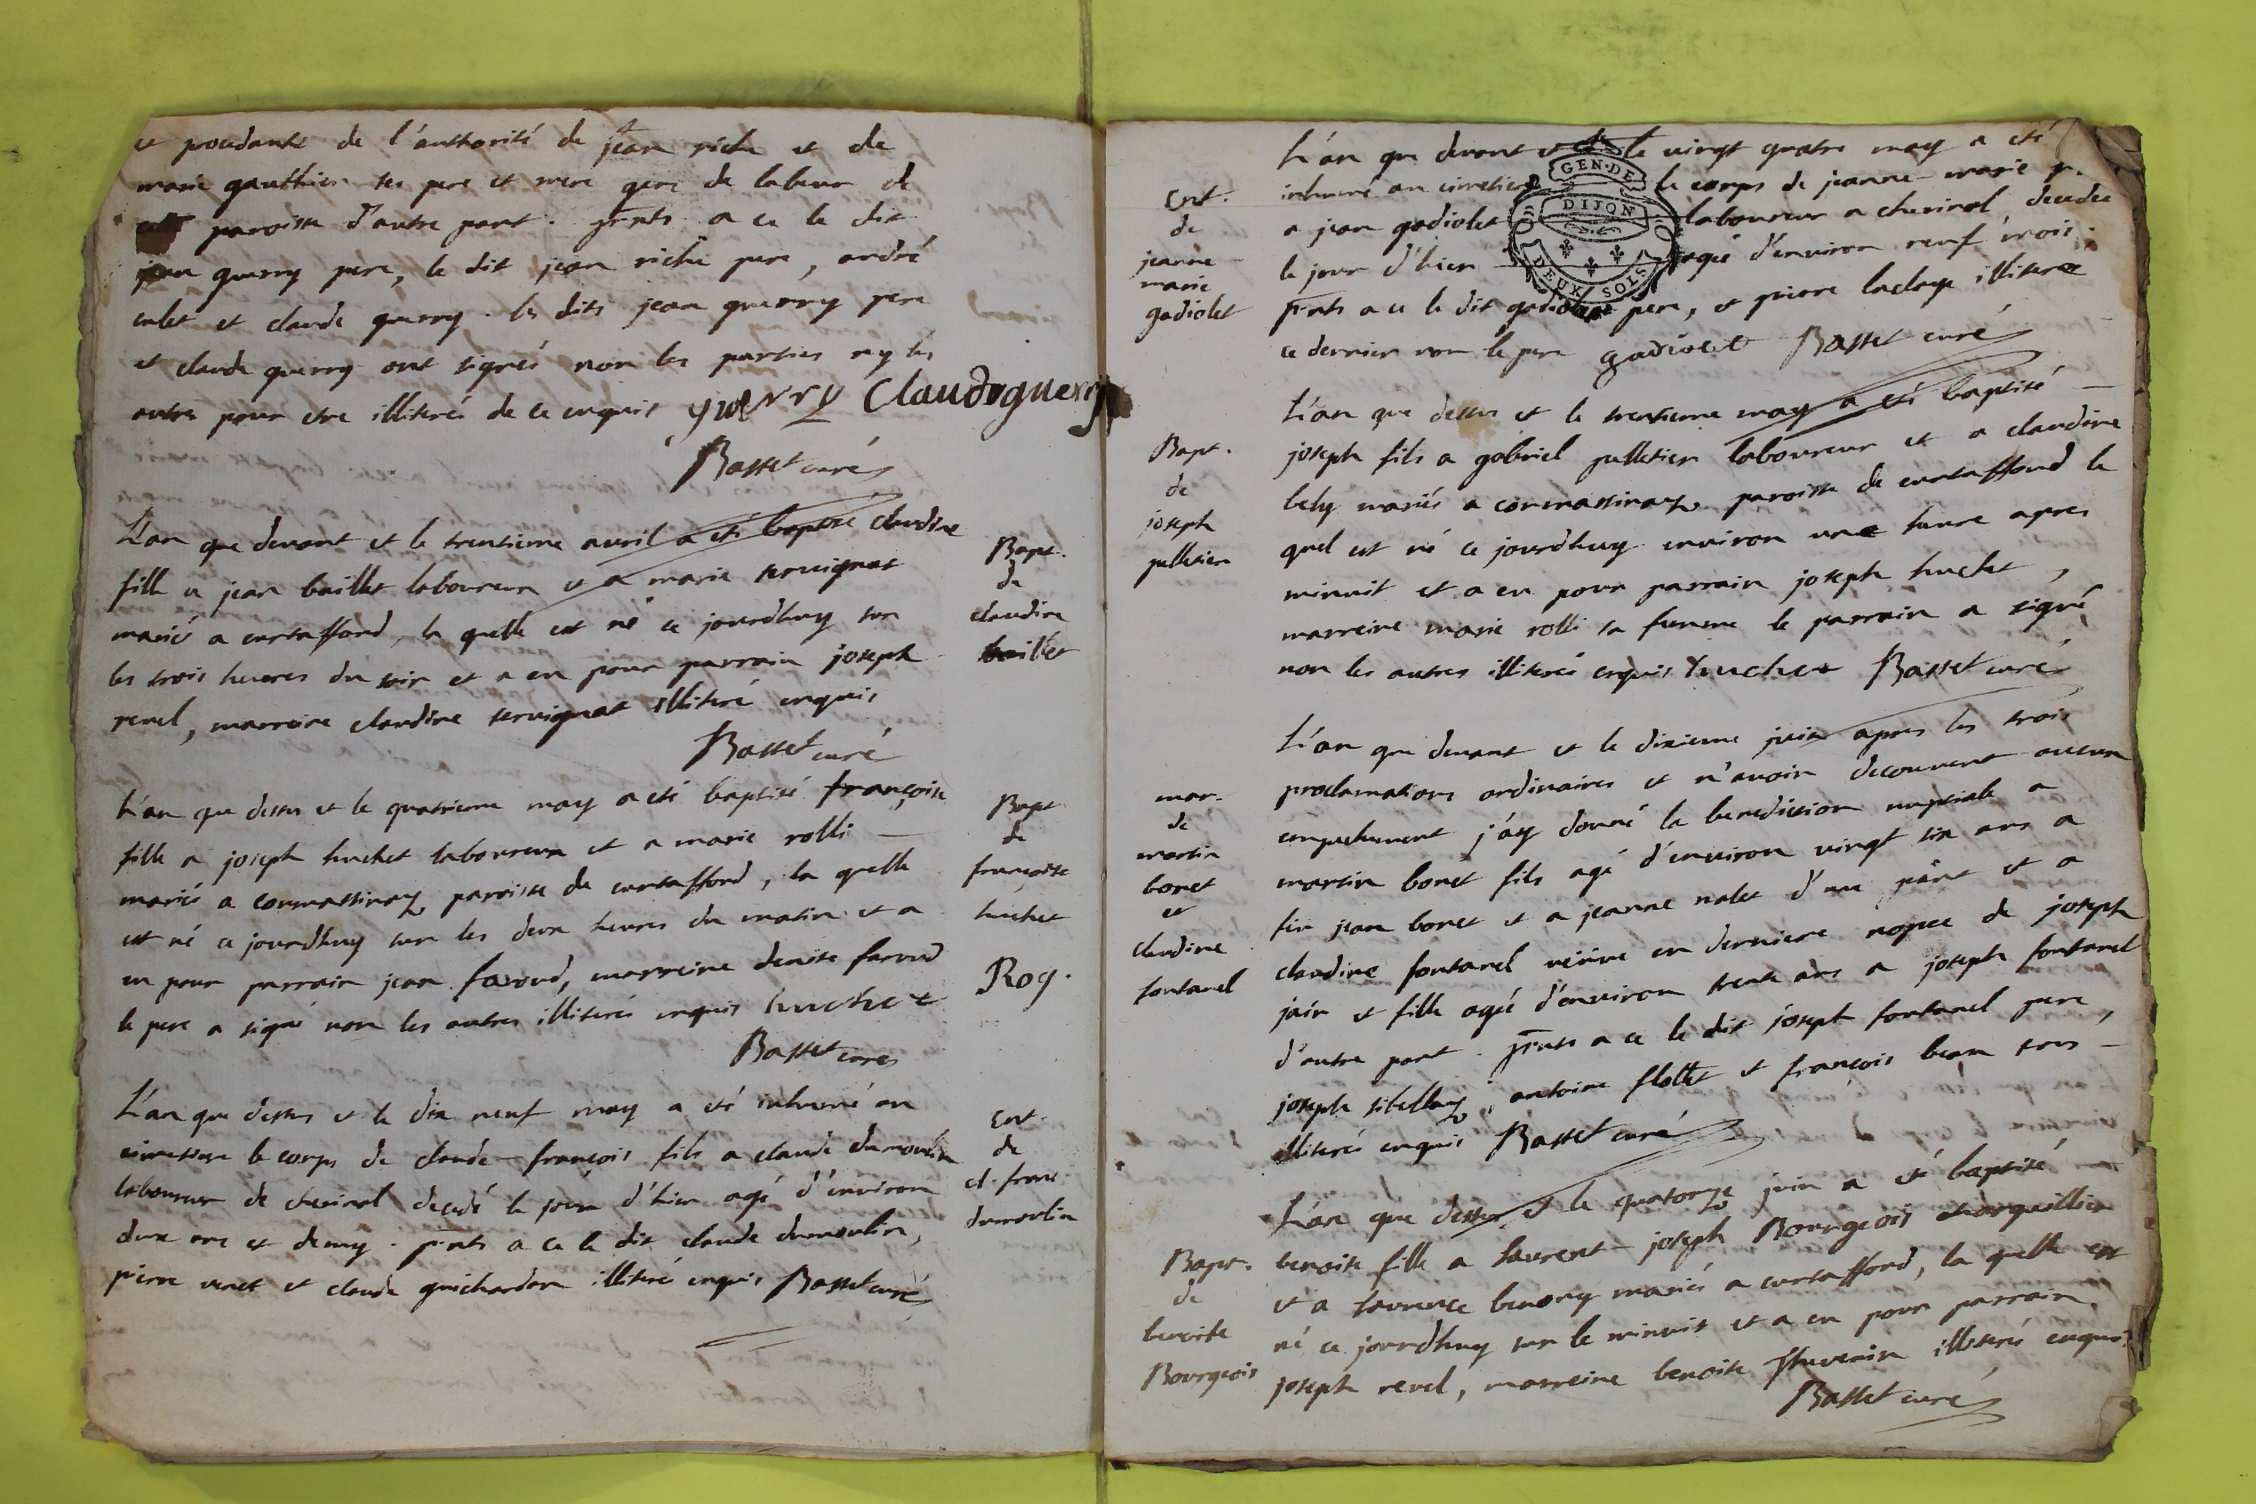 et procedante de l'authorité de jean riche et de
marie gauthier ses pere et mere gens de labeur de
paroisse d'autre part. prnts a ce le dit
jean guerry pere, le dit jean riche pere, andré
et claude guerry. les dits jean guerry pere
et claude guerry ont signés non les parties ny les
autres pour etre illiterés de ce enquis guerry Claude guerry
Basset curé
L'an que devant et le trentieme avril a eté baptisé claudine
fille a jean baillet laboureur et a marie servignat
mariés a curtafford, la quelle est né ce jourdhuy sur
les trois heures du soir et a eu pour parrain joseph
revel, marreine claudine servignat illiteré enquis
Basset curé
Bapt.
de
claudine
baillet
L'an que dessus et le quatrieme may a eté baptisé françoise
fille a joseph huchet laboureur et a marie rolli
mariés a cormassinay paroisse de curtafford, la quelle
est né ce jourdhuy sur les deux heures du matin et a
eu pour parrain jean favoud, marreine denise favoud
le pere a signé non les autres illiterés enquis huchet
Basset curé
Bapt
de
françoise
huchet
Roy.
L'an que dessus et le dix neuf may a eté inhumé au
cimettiere le corps de claude-françois fils a claude dumoulin
laboureur de chevirol decedé le jour d'hier agé d'environ
deux ans et demy. prnts a ce le dit claude dumoulin,
pierre veret et claude guichardon illiteré enquis Basset curé
Ent.
de
cl. franc.
dumoulin
L'an que devant et le vingt quatre may a eté
inhumé au cimetiere le corps de jeanne-marie
a jean gadiolet laboureur a chevirol, decedee
le jour d'hier agée d'environ neuf mois.
prnts a ce le dit gadiolet pere, et pierre laclaye illiteré
ce dernier non le pere gadiolet Basset curé
GEN. DE
DIJON
DEUX SOLS
Ent.
de
jeanne
marie
gadiolet
L'an que dessus et le trentieme may a eté baptisé
joseph fils a gabriel pelletier laboureur et a claudine
bely mariés a cormassinay paroisse de curtafford le
quel est né ce jourdhuy environ une heure apres
minuit et a eu pour parrain joseph huchet,
marreine marie rolli sa femme le parrain a signé
non les autres illiterés enquis huchet Basset curé
Bapt.
de
joseph
pelletier
L'an que devant et le dixieme juin apres les trois
proclamations ordinaires et n'avoir decouvert aucun
empechement j'ay donné la benediction nuptiale a
martin bonet fils agé d'environ vingt six ans a
feu jean bonet et a jeanne nalet d'une part et a
claudine fontanel veuve en derniere nopce de joseph
jain et fille agée d'environ trente ans a joseph fontanel
d'autre part. prnts a ce le dit joseph fontanel pere,
joseph sibellay, antoine flottet et françois bean tous
illiterés enquis Basset curé
mar.
de
martin
bonet
et
claudine
fontanel
L'an que dessus et le quatorze juin a eté baptisé
benoite fille a laurent-joseph Bourgeois marguillier
et a laurence benony mariés a curtafford, la quelle est
né ce jourdhuy sur le minuit et a eu pour parrain
joseph revel, marreine benoite thuvenin illiterés enquis
Basset curé
Bapt.
de
benoite
Bourgeois